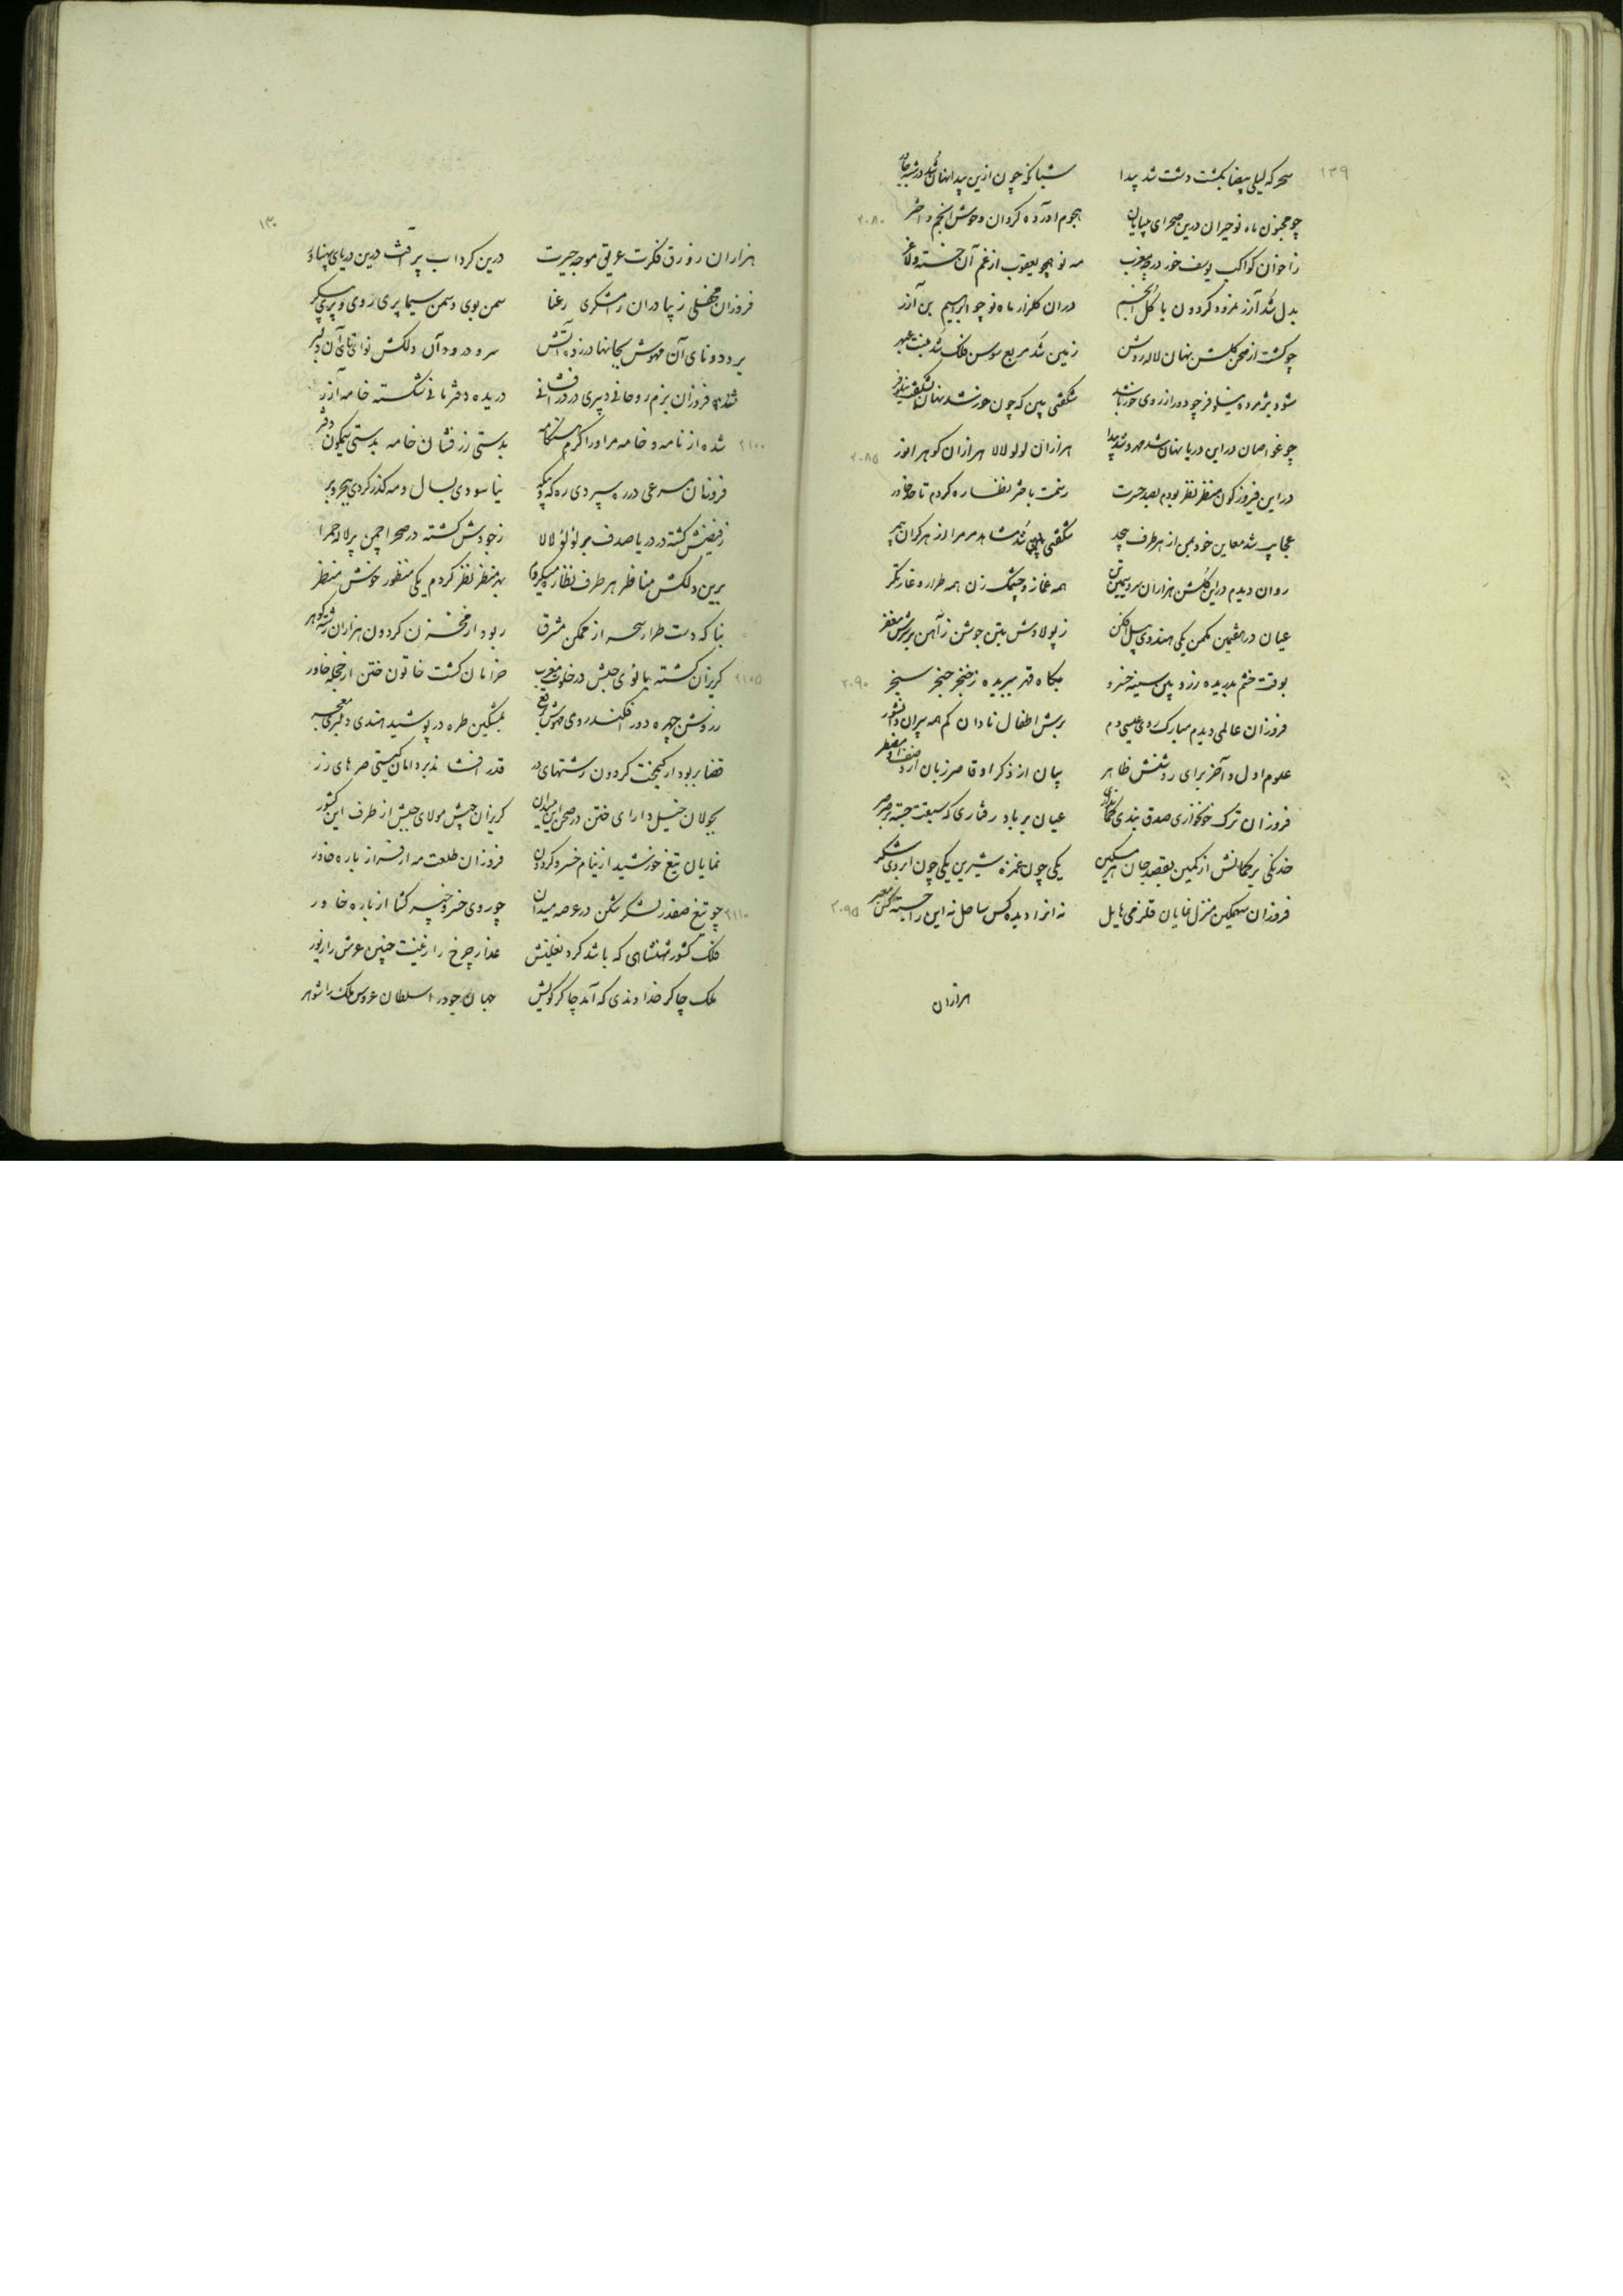 ۱۲۹
سحر که لیلی بیضا بگشت دشت شد پیدا شبانکه چون ازین پیدا نهان شد در شبه چادر
چو مجنون ماه نو حیران درین صحرای بی پایان هجوم آورده گردان وحوش انجم و اختر ۲۰۸۰
ز اخوان کواکب یوسف خور در چه مغرب مه نو همچو یعقوب از غم آن خسته و لاغر
بدل شد آزر نمرود گردون با گل انجم در آن گلزار ماه نو چو ابراهیم بن آزر
چو گشت از صحن گلشن نهان لاله روشن زمین شد مربع سوسن فلک شد منبت عبهر
شود پژمرده نیلوفر چو دور از روی خور باشد شگفتی بین که چون خورشید نهان شکفت نیلوفر
چو غواصان در این دریا نهان شد مهر و شد پیدا هزاران لولو لالا هزاران گوهر انور ۲۰۸۵
در این فیروزه گون منظر نظر بودم بصد حیرت ز سمت باختر نظاره کردم تا حد خاور
عجایب شد معاین خود بمن از هر طرف بیحد شگفتی شد مشاهد مر مرا از هر کران بیمر
روان دیدم در این گلشن هزاران سرو سیمین تن همه غماز و چشمک زن همه طرار و غارتگر
عیان در هفتمین مکمن یکی هندوی پیل افکن ز پولادش بتن جوشن ز آهن بر سرش مغفر
بوقت خشم بدریده ز زوبین سینه خسرو بگاه قهر ببریده ز خنجر حنجر سنجر ۲۰۹۰
فروزان عالمی دیدم مبارک روی عیسی دم برش اطفال نادان کم همه پیران دانشور
علوم اول و آخر برای روشنش ظاهر بیان از ذکر او قاصر زبان از وصف او مضطر
فروزان ترک خونخواری عیان بر باد رفتاری که سبقت جسته بر صرصر
خدنگی بر کمانش از کمین بقصد جان هر مسکین یکی چون غمزه شیرین یکی چون ابروی شکر
فروزان سهمگین منزل نمایان قلزمی هایل نه انرا دیده کس ساحل نه این را جسته کس معبر ۲۰۹۵
هزاران
۱۳۰
هزاران زورق فکرت غریق موجه حیرت درین گرداب پر آفت درین دریای پهناور
فروزان محفلی زیبا در آن رامشگری رعنا سمن بوی و سمن سیما پری روی و پری پیکر
برود و نای آن مهوش بجانها در زده آتش سرود رود آن دلکش نوای نای آن دلبر
فروزان بزم روحانی دبیری در در افشانی دریده دفتر مانی شکسته خامه آزر
۲۱۰۰ شده از نامه و خامه مر او را گرم هنگامه بدستی زرفشان خامه بدستی نیلگون دفتر
فروزان مسرعی در ره سپردی ره که و بیگه نیاسودی بسال و مه گذر کردی ببحر و بر
ز فیضش گشته در دریا صدف پر لؤلؤ لالا ز جودش گشته در صحرا چمن پر لاله حمرا
برین دلکش مناظر هر طرف نظاره میکردم بهر منظر نظر کردم یکی منظور خوش منظر
بناگه دست طرار سحر از ممکن مشرق ربود از مخزن گردون هزاران رشته گوهر
۲۱۰۵ گریزان گشته بانوی حبش در خلوت مغرب خرامان گشت خاتون ختن از حجله خاور
ز روشن چهره دور افکند روی مهوش برقع بمشکین طره در پوشید هندی دلبری معجر
قضا بربود از گنجفت گردون رشتهای در قدر افشاند بر دامان گیتی صره های زر
بجولان خیل دارای ختن در صحن این میدان گریزان جیش مولای حبش از طرف این کشور
نمایان تیغ خورشید از نیام خسرو گردون فروزان طلعت مه از فراز باره خاور
۲۱۱۰ چو تیغ صفدر لشکر شکن در عرصه میدان چو روی خسرو خیبر گشا از باره خاور
فلک کشور شهنشاهی که باشد گرد نعلینش عذار چرخ را زینت جبین عرش را زیور
ملک چاکر خداوندی که آمد چاکر کویش جهان جود را سلطان عروس ملک را شوهر